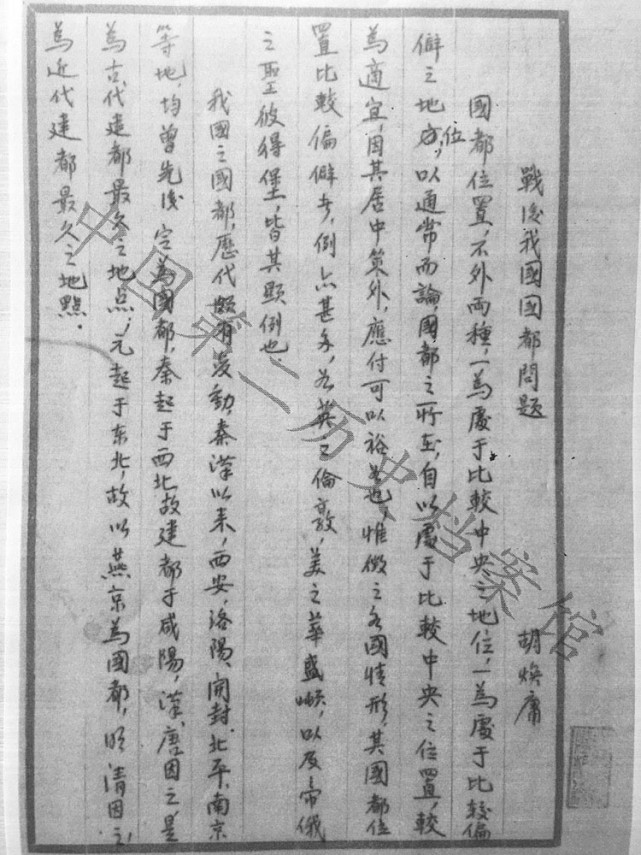 戰後我國國都問題
胡煥庸
國都位置，不外兩種，一為處于比較中央之地位，一為處于比較偏
僻之地位，以通常而論，國都之所在，自以處于比較中央之位置，較
為適宜，因其居中策外，應付可以裕如也，惟徵之各國情形，其國都位
置比較偏僻者，例亦甚多，若英之倫敦，美之華盛頓，以及帝俄
之聖彼得堡，皆其顯例也．
我國之國都，歷代頗有變動，秦漢以来，西安，洛陽，開封，北平，南京
等地，均曾先後定為國都，秦起于西北故建都于咸陽，漢，唐因之，是
為古代建都最久之地点，元起于东北，故以燕京為國都，明清因之，
為近代建都最久之地點．
中国第二历史档案馆